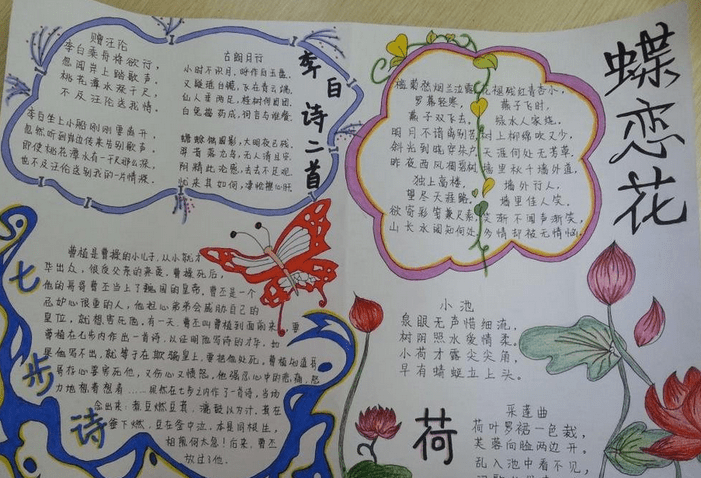 李白诗二首
赠汪伦
李白乘舟将欲行,
忽闻岸上踏歌声。
桃花潭水深千尺,
不及汪伦送我情。
李白坐上小船刚刚要离开,
忽然听到岸边传来告别歌声。
即使桃花潭水有一千尺那么深,
也不及汪伦送别我的一片情深。
古朗月行
小时不识月,呼作白玉盘。
又疑瑶台镜,飞在青云端。
仙人垂两足,桂树何团团。
白兔捣药成,问言与谁餐。
蟾蜍蚀圆影,大明夜已残。
羿昔落九乌,天人清且安。
阴精此沦惑,去去不足观。
忧来其如何,
蝶恋花
槛菊愁烟兰泣露
罗幕轻寒,
燕子双飞去。
明月不谙离别苦
斜光到晓穿朱户
昨夜西风凋碧树
独上高楼,
望尽天涯路。
欲寄彩笺兼尺素
山长水阔知何处
花褪残红青杏小,
燕子飞时,
绿水人家绕。
枝上柳绵吹又少,
天涯何处无芳草。
墙里秋千墙外道,
墙外行人,
墙里佳人笑,
笑渐不闻声渐笑,
多情却被无情恼。
七步诗
曹植是曹操的小儿子,从小就才
华出众,很受父亲的疼爱。曹操死后,
他的哥哥曹丕当上了魏国的皇帝。曹丕是一个
忌妒心很重的人,他担心弟弟会威胁自己的
皇位,就想害死他。有一天,曹丕叫曹植到面前来,要
曹植在七步内作出一首诗,以证明他写诗的才华。如
果他写不出,就等于在欺骗皇上,要把他处死。曹植知道哥
哥存心要害死他,又伤心又愤怒。他强忍心中的悲痛,努
力地想着想着……果然在七步之内作了一首诗,当场
念出来:煮豆燃豆萁,漉豉以为汁。萁在
釜下燃,豆在釜中泣。本是同根生,
相煎何太急!后来,曹丕
放过了他。
小池
泉眼无声惜细流,
树阴照水爱情柔。
小荷才露尖尖角,
早有蜻蜓立上头。
荷
采莲曲
荷叶罗裙一色裁,
芙蓉向脸两边开。
乱入池中看不见,